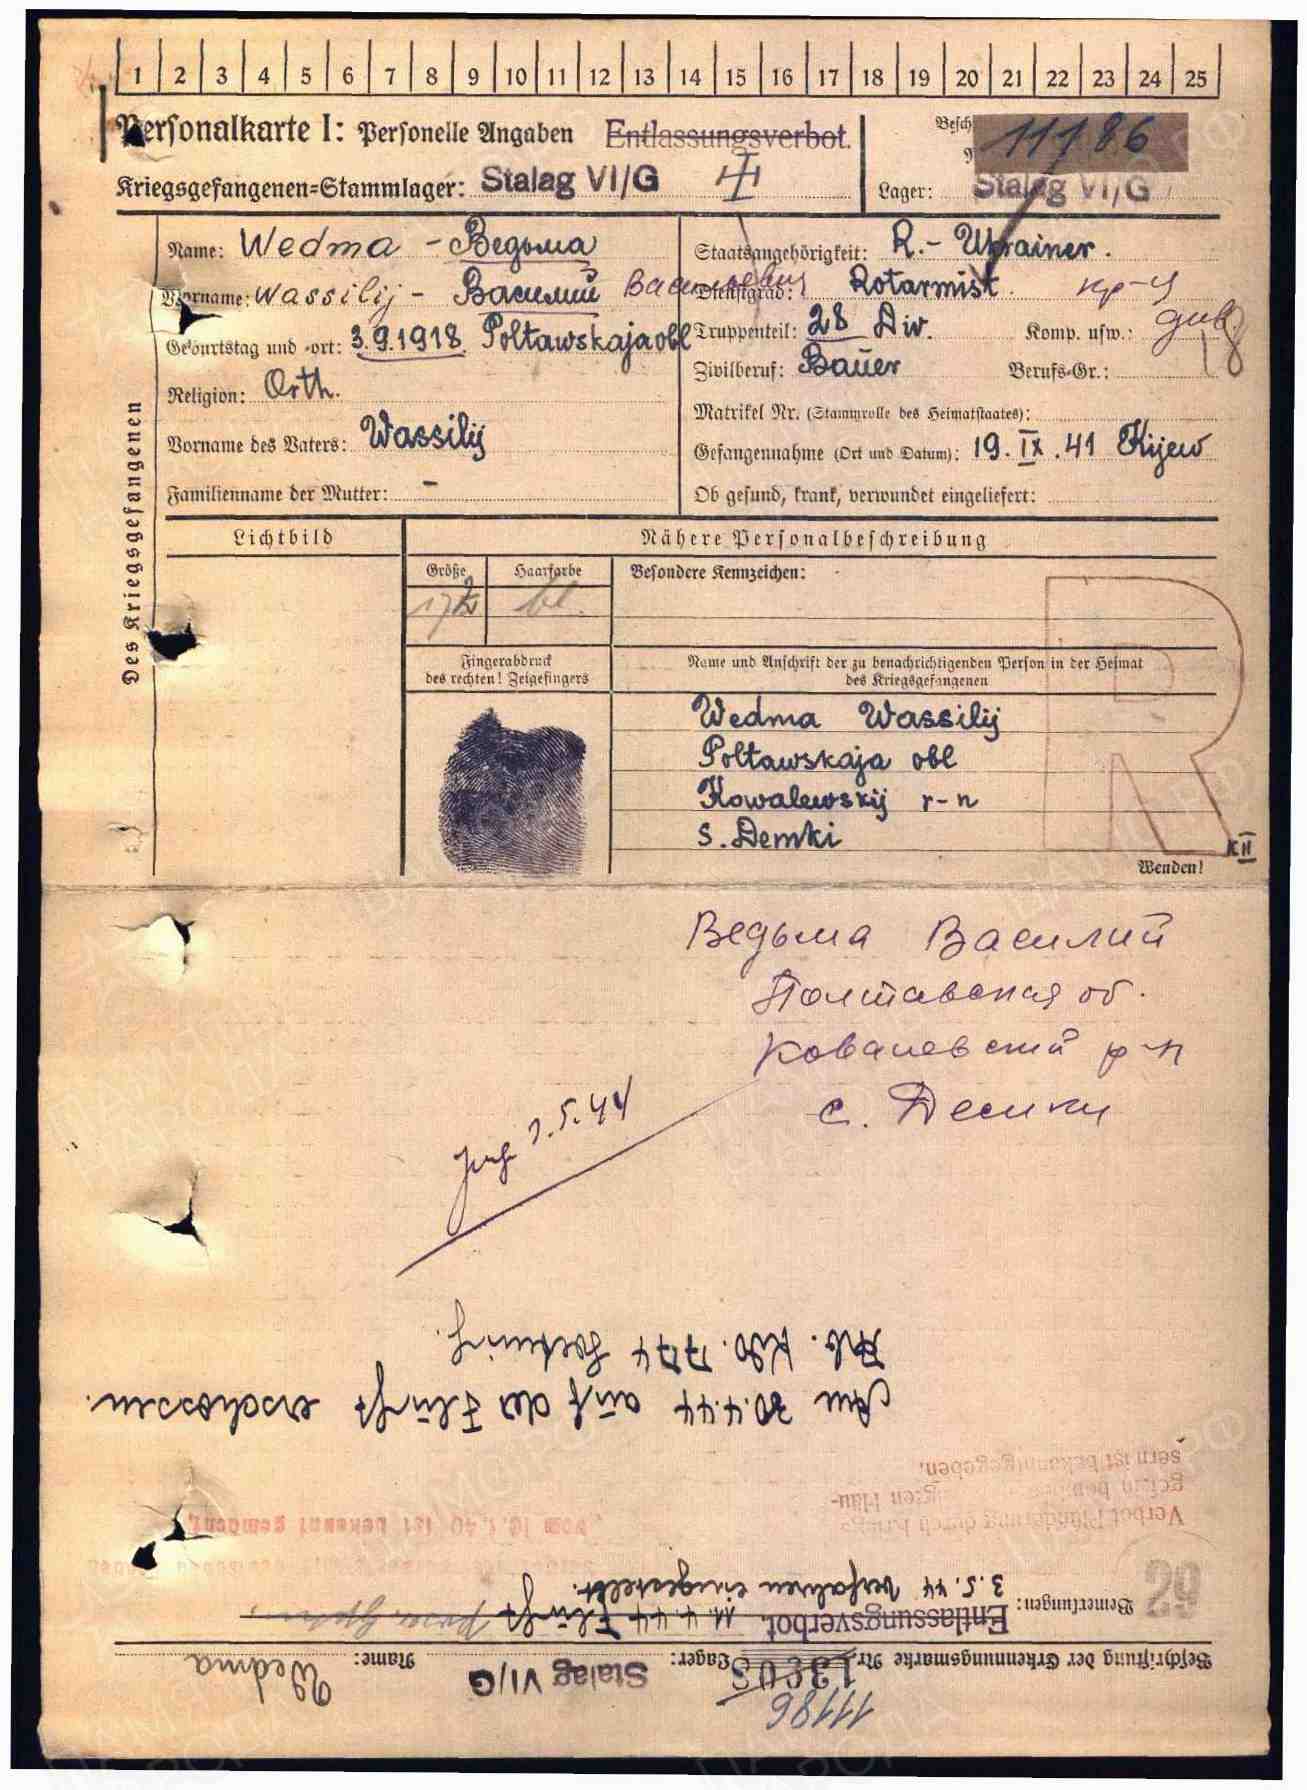 1 2 3 4 5 6 7 8 9 10 11 12 13 14 15 16 17 18 19 20 21 22 23 24 25
Personalkarte I: Personelle Angaben Entlassungsverbot.
11186
Kriegsgefangenen-Stammlager: Stalag VI/G
Lager: Stalag VI/G
Des Kriegsgefangenen
Name: Wedma - Ведьма
Vorname: Wassilij - Василий Васильевич
Geburtstag und -ort: 3.9.1918. Poltawskaja obl
Religion: Orth.
Vorname des Vaters: Wassilij
Familienname der Mutter: -
Staatsangehörigkeit: R.- Ukrainer.
Dienstgrad: Rotarmist кр-ц
Truppenteil: 28 Div. Komp. usw.: див.
Zivilberuf: Bauer Berufs-Gr.:
Matrikel Nr. (Stammrolle des Heimatstaates):
Gefangennahme (Ort und Datum): 19. IX. 41 Kijew
Ob gesund, krank, verwundet eingeliefert:
Lichtbild
Nähere Personalbeschreibung
Größe Haarfarbe Besondere Kennzeichen: -
172 bl.
Fingerabdruck
des rechten! Zeigefingers
Name und Anschrift der zu benachrichtigenden Person in der Heimat
des Kriegsgefangenen
R
Wedma Wassilij
Poltawskaja obl
Kowalewskij r-n
s. Demki
K II
Wenden!
Ведьма Василий
Полтавская об.
Ковалевский р-н
с. Демки
1.5.44
Beschriftung der Erkennungsmarke Nr. 11186 Lager: Stalag VI/G Name: Wedma
Bemerkungen: Entlassungsverbot. 11.4.44 Flucht
3.5.44 Verfahren eingestellt.
29
vom 10.1.40 ist bekannt gemacht.
Verbot Plünderung durch Kriegs-
sern ist bekanntgegeben.
Am 30.4.44 auf der Flucht erschossen.
Arb. Kdo. 774